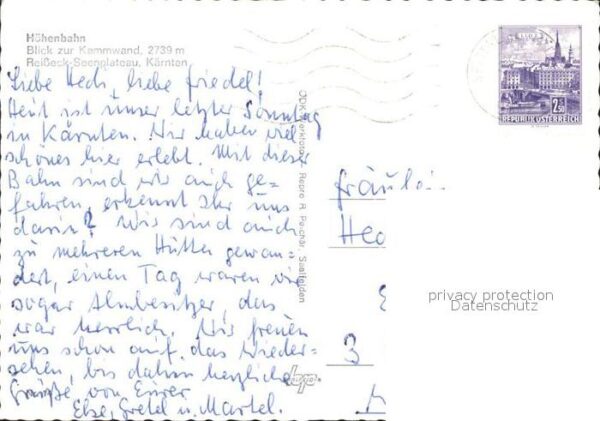 Höhenbahn
Blick zur Kammwand, 2739 m
Reißeck-Seenplateau, Kärnten
Liebe Hedi, liebe Friedel!
Heut ist unser letzter Sonntag
in Kärnten. Wir haben viel
schönes hier erlebt. Mit dieser
Bahn sind wir auch ge-
fahren, erkennt Ihr uns
darin? Wir sind auch
zu mehreren Hütten gewan-
dert, einen Tag waren wir
sogar Almbesitzer, das
war herrlich. Wir freuen
uns schon auf das Wieder-
sehen, bis dahin herzliche
Grüße von Eurer
Else, Gretel u. Martel.
Repro R. Pelchär, Saalfelden
2.50
REPUBLIK ÖSTERREICH
Fräulei
Hed
3
privacy protection
Datenschutz